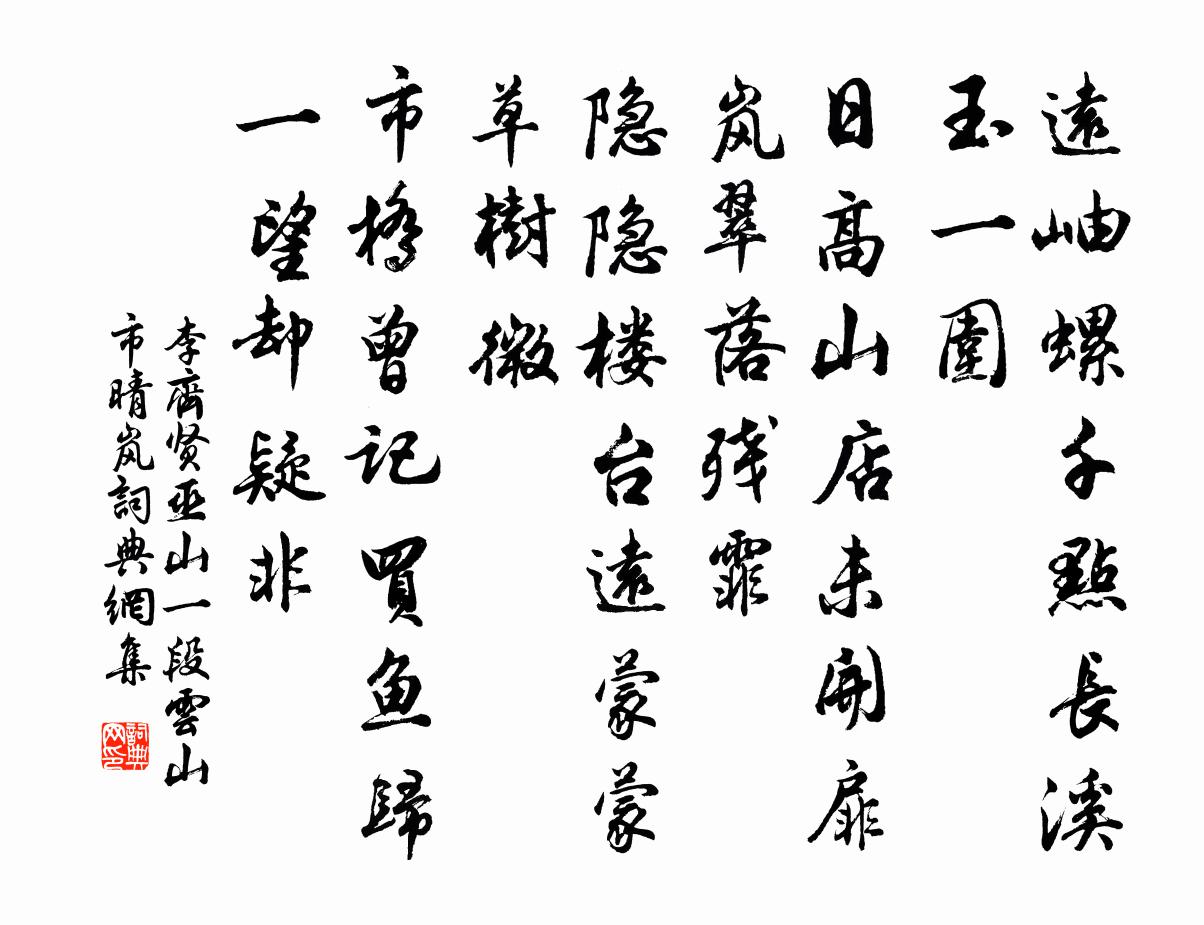 遠岫螺千點長溪
玉一圍
日高山店未開扉
岚翠落残霏
隐隐楼台遠蒙蒙
草樹微
市橋曾記買鱼歸
一望却疑非
李齊贤巫山一段雲山
市晴岚詞典網集
詞典
网印